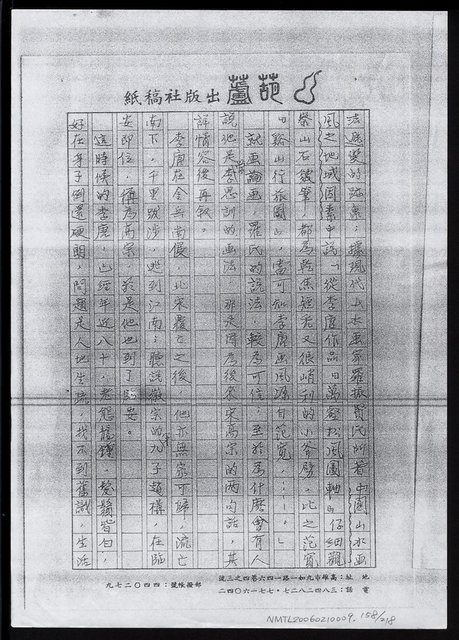 葫蘆出版社稿紙
法遞變的跡象；據現代山水畫家羅振賢氏所著中國山水畫
風之地域因素中說「從李唐作品『萬壑松風圖軸』仔細觀
察山石皴筆，都為乾焦短禿又很峭利的小斧劈，比之范寬
『谿山行旅圖』，當可似李唐畫風源自范寬，……」。
就畫論畫，羅氏的說法，較為可信；至於為什麼會有人
說他是學李思訓的畫法，那是因為後來宋高宗的兩句話，其
詳情容後再敘。
李唐在金兵南侵，北宋覆亡之後，他亦無家可歸，流亡
南下，千里跋涉，逃到江南；聽說徽宗的九子趙構，在臨
安即位，稱為高宗，於是他也到了臨安。
這時候的李唐，已經年近八十，老態龍鍾，鬚髮皆白，
好在身子倒還硬朗，問題是人地生疏，找不到舊識，生活
地址：高雄市九如一路一四六巷四之三號
電話：三八四二八二七．七七一六〇四二
郵撥帳號：四四〇二七九
NMTL20060210009. 158/218